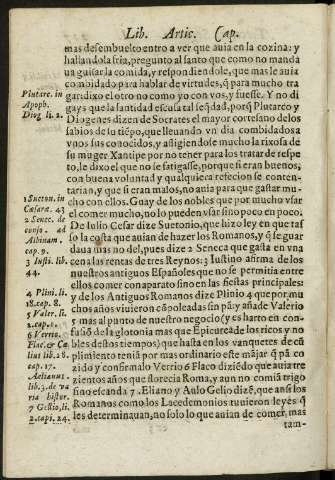 Lib. Artic. Cap.
mas desembuelto entro a ver que auia en la cozina: y
hallandola fria, pregunto al santo que como no manda
ua guisar la comida, y respondiendole, que mas le auia
combidado para hablar de virtudes, q̃ para mucho tra
gar: dixo el otro no como yo con vos, y fuesse. Y no di
gays que la santidad escusa tal seq̃dad, porq̃ Plutarco y
Diogenes dizen de Socrates el mayor cortesano de los
sabios de su tiẽpo, que lleuando vn dia combidados a
vnos sus conocidos, y afligiendose mucho la rixosa de
su muger Xantipe por no tener para los tratar de respe
to, le dixo el que no se fatigasse, porque si eran buenos,
con buena voluntad y qualquiera refecion se conten-
tarian, y que si eran malos, no auia para que gastar mu-
cho con ellos. Guay de los nobles que por mucho vsar
el comer mucho, no lo pueden vsar sino poco en poco.
De Iulio Cesar dize Suetonio, que hizo ley en que tas
so la costa que auian de hazer los Romanos, y q̃ se guar
daua mas no del, pues dize 2 Seneca que gasta en vna
cena las rentas de tres Reynos: 3 Iustino afirma de los
nuestros antiguos Españoles que no se permitia entre
ellos comer con aparato sino en las fiestas principales
y de los Antiguos Romanos dize Plinio 4 que por mu
chos años viuieron cõ poleadas sin pã y añade Valerio
y mas al punto de nuestro negocio (y es harto en con-
fusiõ de la glotonia mas que Epicurea de los ricos y no
bles destos tiempos) que hasta en los vanquetes de cũ
plimiento tenià por mas ordinario este màjar q̃ pã co
zido y confirmalo Verrio 6 Flaco diziẽdo que auia tre
zientos años que florecia Roma, y aun no comiã trigo
sino escanda 7. Eliano y Aulo Gelio dizẽ, que ansi los
Romanos como los Lacedemonios tuuieron leyes q̃
les determinauan, no solo lo que auian de comer, mas
tam-
Plutarc. in
Apoph.
Diog li. 2.
1 Sueton. in
Cæsara. 43
2 Senec. de
conso. ad
Albinam.
cap. 9.
3 Iusti. lib.
44.
4 Plini. li.
18. cap. 8.
5 Valer. li.
2. cap. 1.
6 Verrio.
Flac. & Cæ
lius lib. 28.
cap. 17.
Aelianus.
lib. 3. de va
ria histor.
7 Gellio, li.
2. capi. 24.